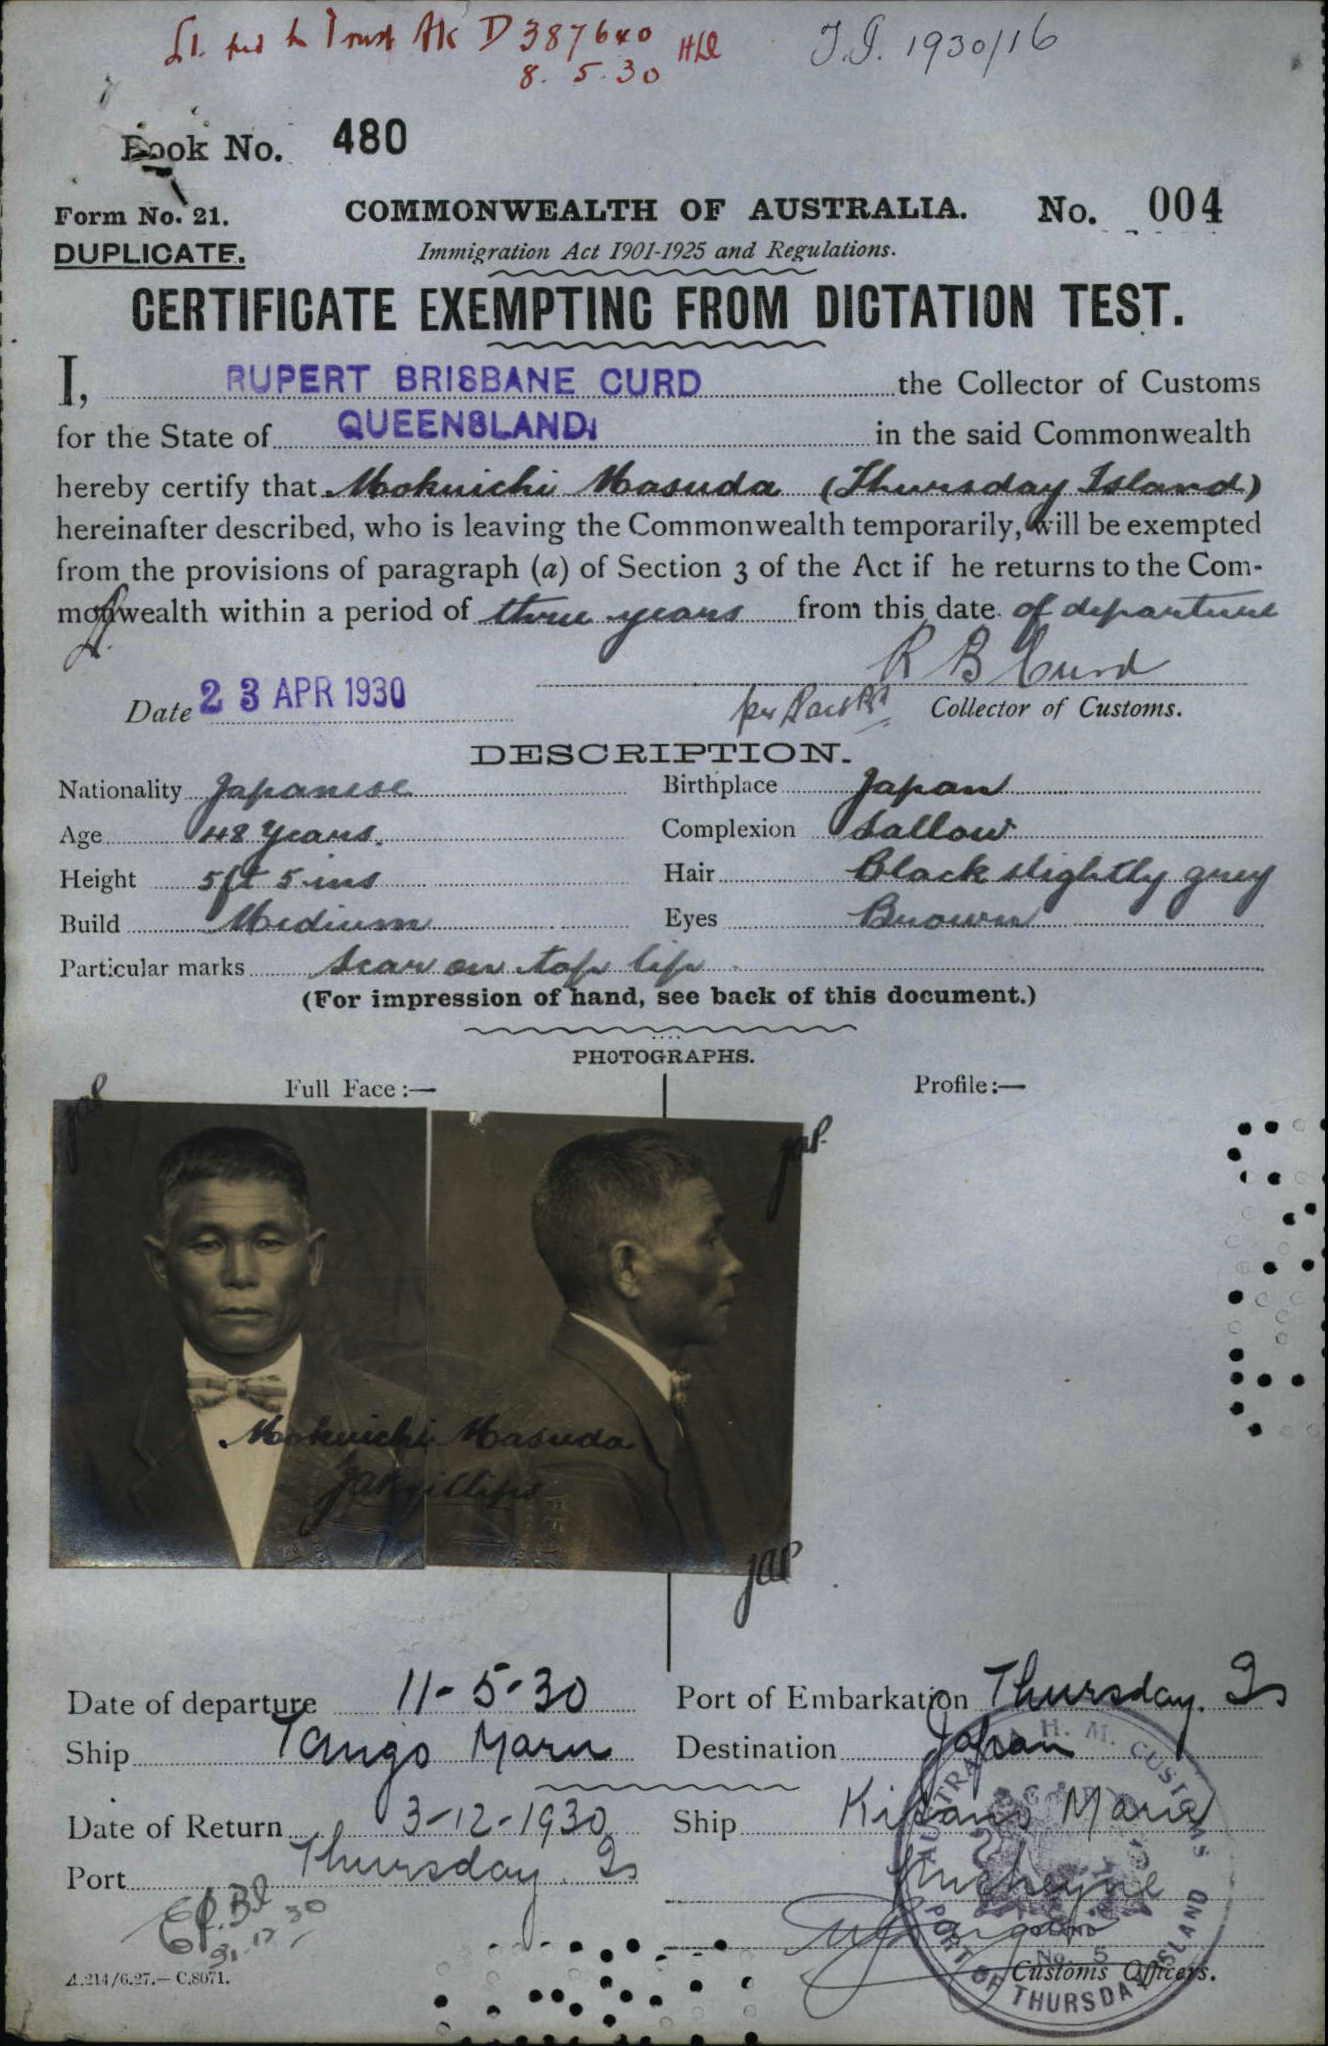 £1. pd to Trust Ak D 387640 HLl
8. 5. 30
T.I. 1930/16
Book No. 480
Form No. 21.
COMMONWEALTH OF AUSTRALIA.
No. 004
DUPLICATE.
Immigration Act 1901-1925 and Regulations.
CERTIFICATE EXEMPTING FROM DICTATION TEST.
I, RUPERT BRISBANE CURD the Collector of Customs
for the State of QUEENSLAND. in the said Commonwealth
hereby certify that Mokuichi Masuda (Thursday Island)
hereinafter described, who is leaving the Commonwealth temporarily, will be exempted
from the provisions of paragraph (a) of Section 3 of the Act if he returns to the Com-
monwealth within a period of three years from this date of departure
R B Curd
Date 23 APR 1930
per
Collector of Customs.
DESCRIPTION.
Nationality Japanese
Birthplace Japan
Age 48 Years.
Complexion Sallow
Height 5ft 5 ins
Hair Black slightly grey
Build Medium
Eyes Brown
Particular marks Scar on top lip
(For impression of hand, see back of this document.)
PHOTOGRAPHS.
Full Face :—
Profile :—
jap
jap.
Mokuichi Masuda
jap
Date of departure 11-5-30
Port of Embarkation Thursday Is
Ship Tango Maru
Destination Japan
Date of Return 3-12-1930
Ship Kitano Maru
Port Thursday Is
31.12.30
Customs Officers.
A.214/6.27.—C.8071.
AUSTRALIA H. M. CUSTOMS
No. 5
PORT OF THURSDAY ISLAND